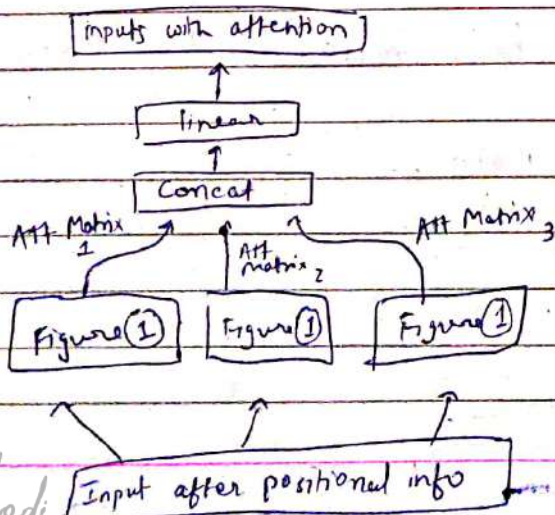 inputs with attention
linear
Concat
Att Matrix 1
Att Matrix 2
Att Matrix 3
Figure 1
Figure 1
Figure 1
Input after positional info